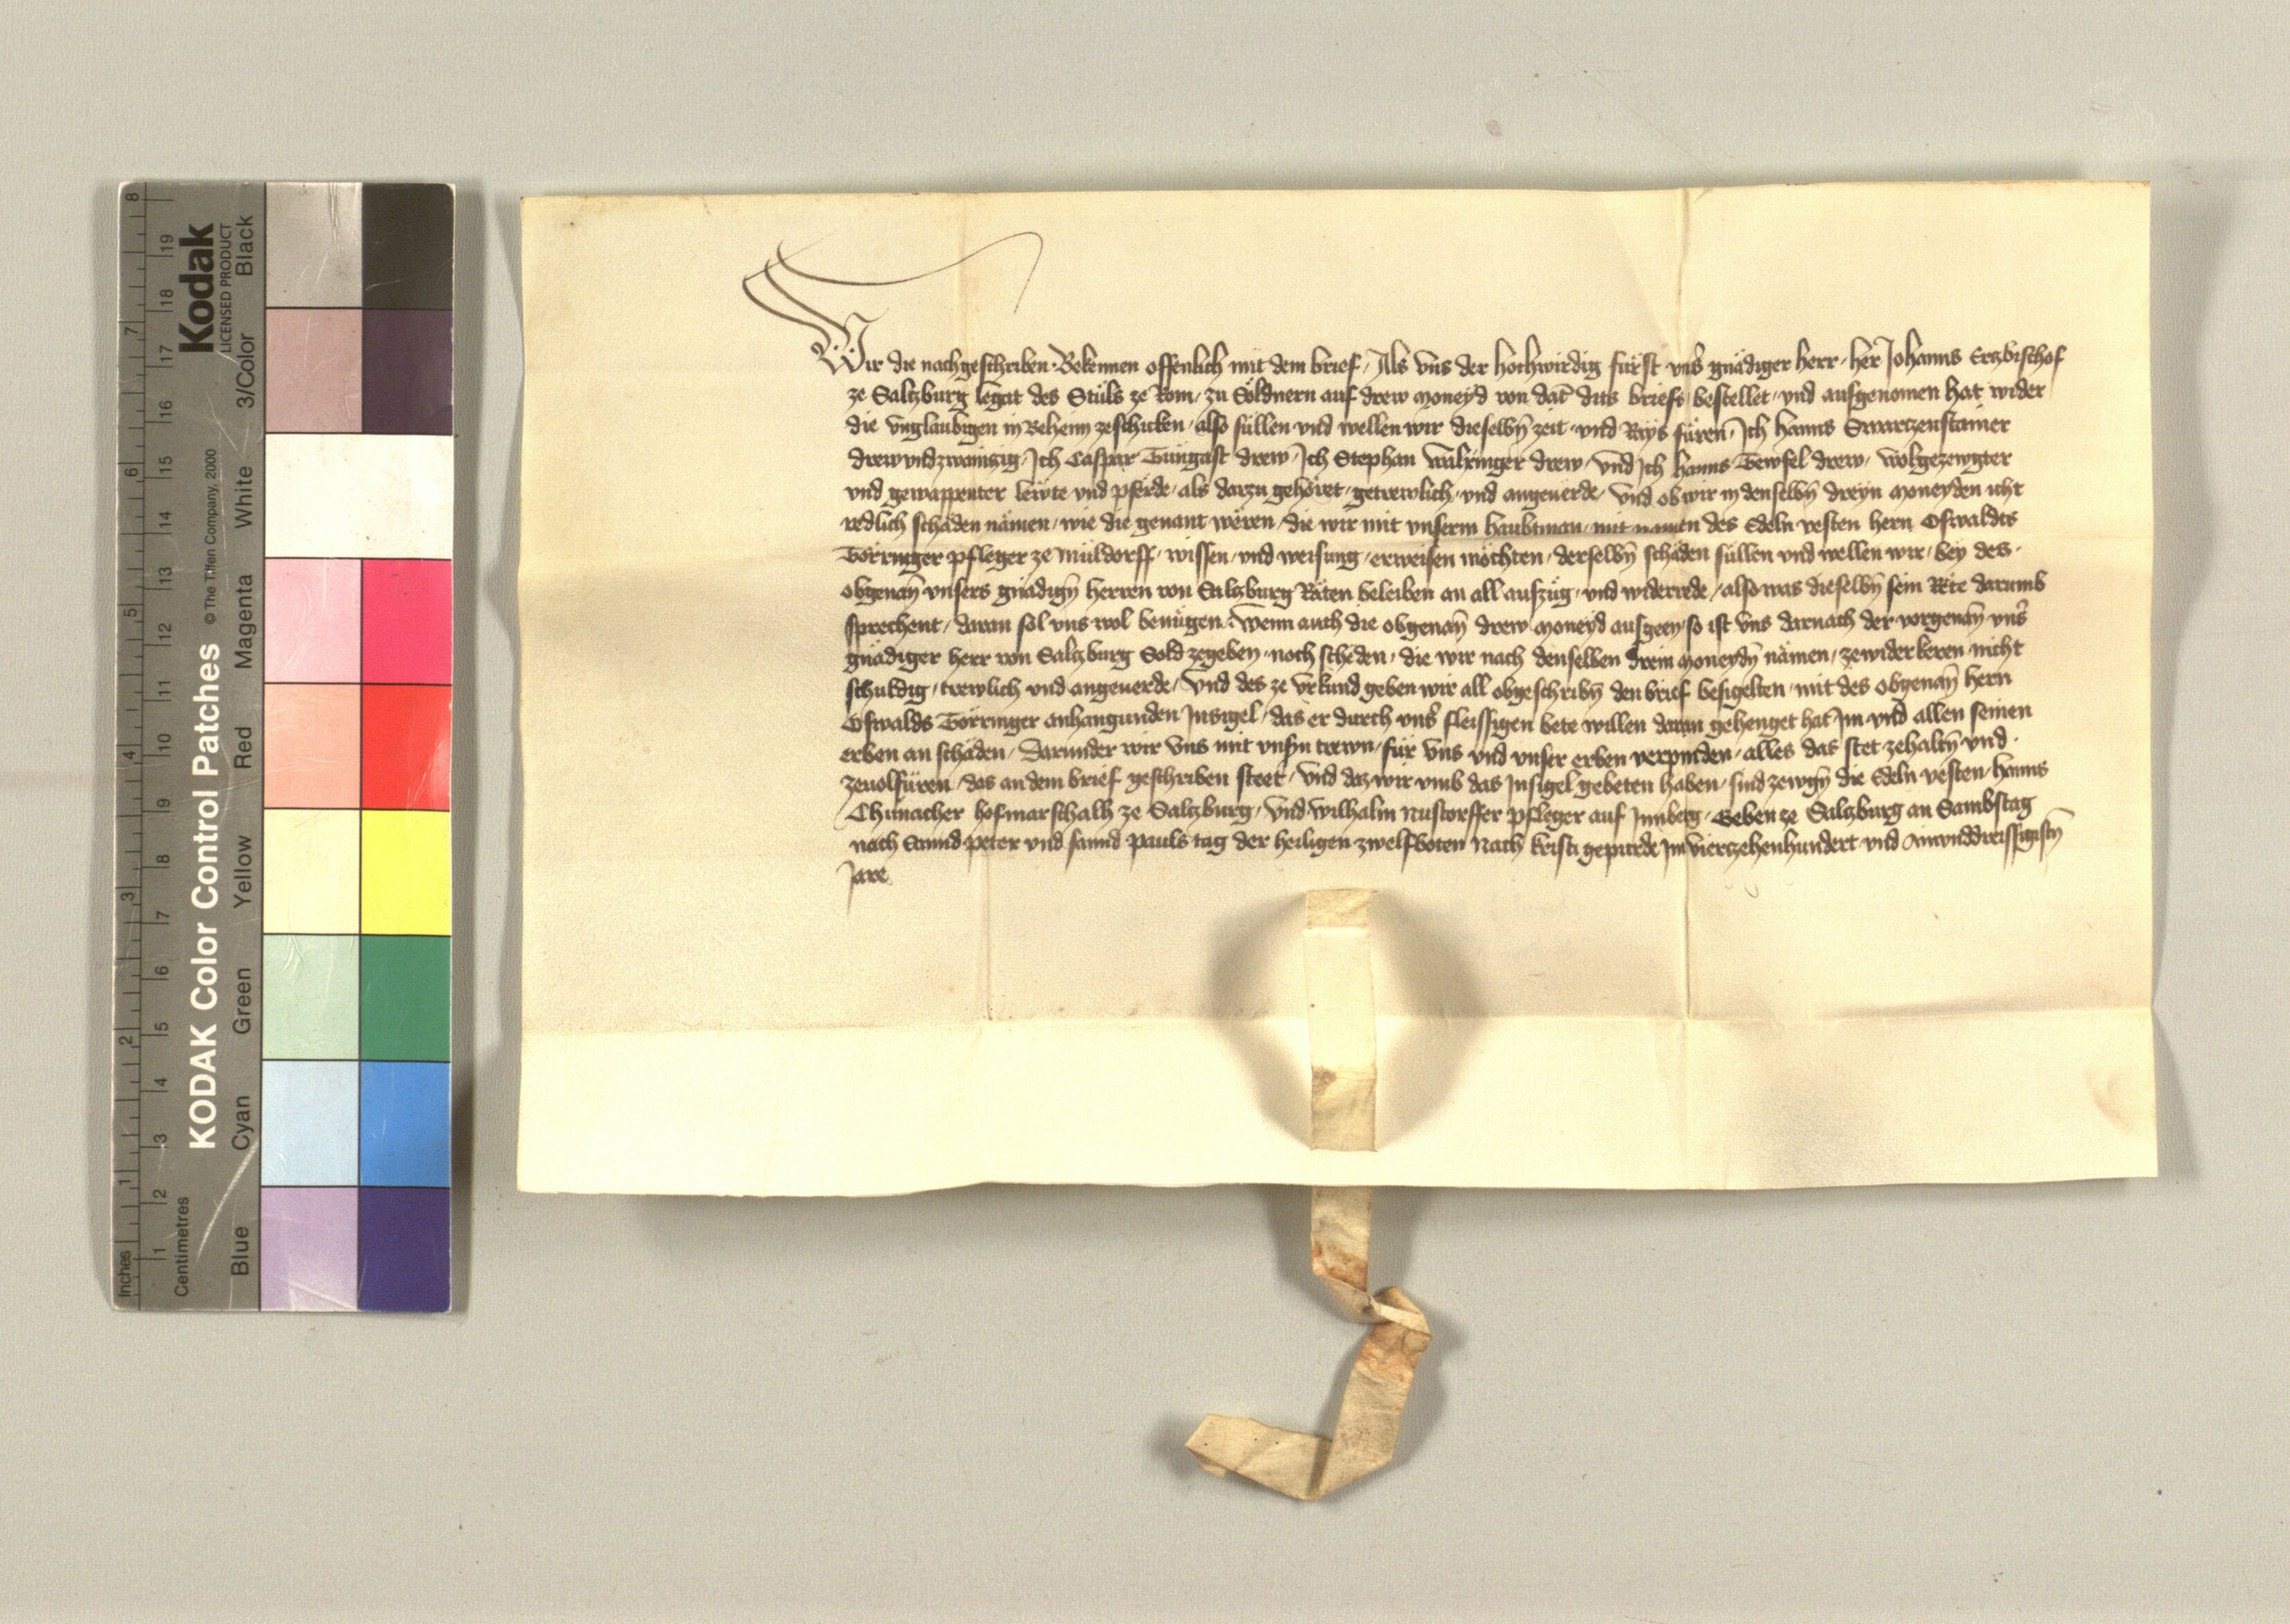 Wir die nachgeschriben Bekennen offenlich mit dem brief, Als vns der hochwirdig fürst vnser gnädiger herr, her Johanns Ertzbischof
ze Saltzburg legat des Stuls ze Rom, zu Söldnern auf drew moneyd von dat dits briefs bestellet, vnd aufgenomen hat wider
die vnglaubigen in Beheim zeschicken, also süllen vnd wellen wir dieselbn̄ zeit, vnd Rays füren, Ich Hanns Swartzenstainer
drew vnd zwainzig, Ich Caspar Tüngast drew, Ich Stephan drew, vnd Ich Hanns Tewfel drew, wolgezewgter
vnd gewappenter lewte vnd pferde, als darzu gehöret, getrewlich, vnd angeuerde, Vnd ob wir in denselbn̄ dreyn moneyden icht
redlich schäden nämen, wie die genant wëren, die wir mit vnserm haubtman, mit namen des Edeln vesten hern Oswaldts
Törringer pfleger ze Müldorff, wissen, vnd weisung, erweisen möchten, derselbn̄ schäden süllen vnd wellen wir, bey des
obgenan̄ vnsers gnädign̄ herren von Saltzburg Räten beleiben an all auszüg, vnd widerrede, also was dieselbn̄ sein Rëte darumb
sprechent, daran sol vns wol benügen. Wenn auch die obgenan̄ drew moneyd ausgeen, so ist vns darnach der vorgenan̄ vnser
gnädiger herr von Saltzburg Sold zegeben, noch scheden, die wir nach denselben drein moneydn̄ nämen, zewiderkeren nicht
schuldig, trewlich vnd angeuerde, Vnd des ze vrkund geben wir all obgeschribn̄ den brief besigelten, mit des obgenan̄ hern
Oswalds Törringer anhangunden Insigel, das er durch vnser fleissigen bete willen daran gehenget hat Im vnd allen seinen
erben an schäden, Darunder wir vns mit vnsn̄ trewn, für vns vnd vnser erben verpinden, alles das stet zehaltn̄ vnd
zeuolfüren, das an dem brief geschriben steet, Vnd daz wir vmb das Insigel gebeten haben, sind zewgn̄ die Edeln vesten, Hanns
Chunacher hofmarschalh ze Saltzburg, Vnd Wilhalm Nustorffer pfleger auf Geben ze Saltzburg an Sambstag
nach Sannd Peter vnd sannd Pauls tag der heiligen zwelfboten Nach kristi gepurde Im vierzehenhundert vnd Ainvnddreissigistn̄
Jare
KODAK Color Control Patches © The Tiffen Company, 2000
Kodak
LICENSED PRODUCT
Inches 1 2 3 4 5 6 7 8
Centimetres 1 2 3 4 5 6 7 8 9 10 11 12 13 14 15 16 17 18 19
Blue Cyan Green Yellow Red Magenta White 3/Color Black